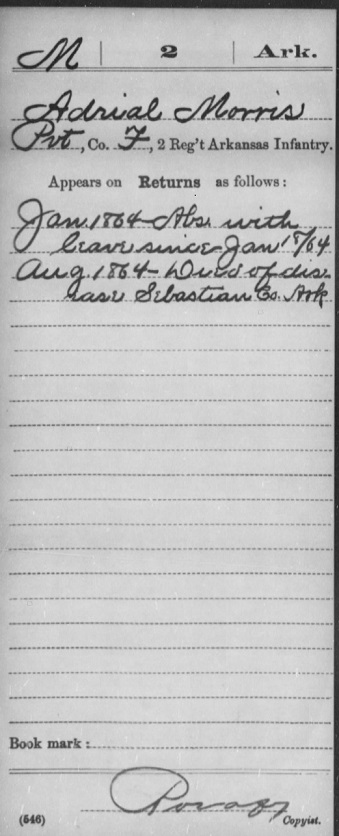 M | 2 | Ark.
Adrial Morris
Pvt, Co. F, 2 Reg't Arkansas Infantry.
Appears on Returns as follows:
Jan. 1864 - Abs. with
leave since Jan 18/64
Aug. 1864 - Died of dis-
ease Sebastian Co. Ark
Book mark:
(546) Copyist.